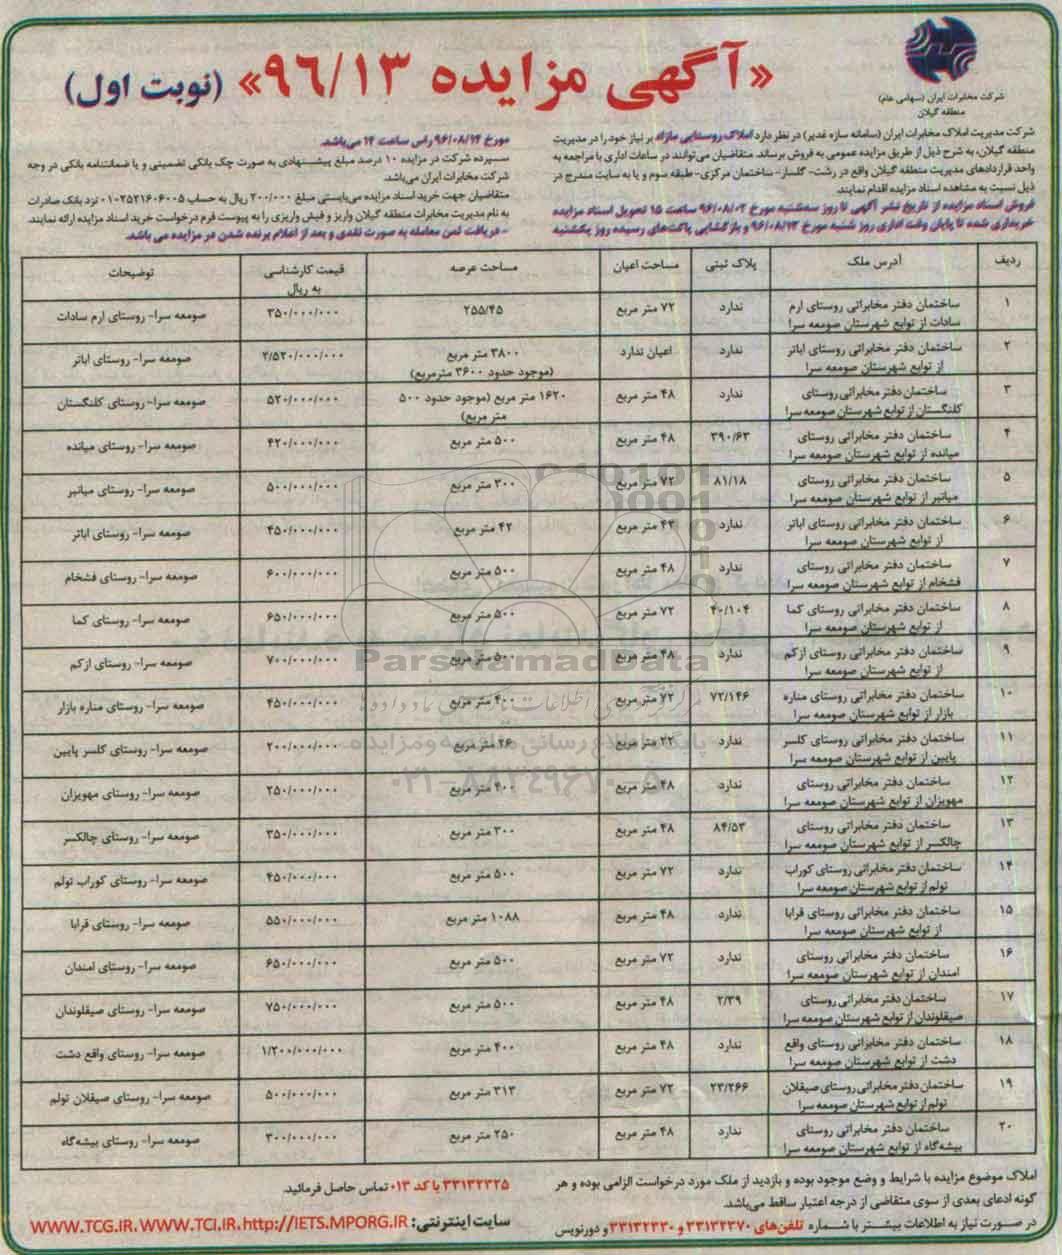 شرکت مخابرات ایران (سهامی عام)
منطقه گیلان
«آگهی مزایده ۹۶/۱۳» (نوبت اول)
شرکت مدیریت املاک مخابرات ایران (سامانه سازه غدیر) در نظر دارد املاک روستایی مازاد بر نیاز خود را در مدیریت
منطقه گیلان، به شرح ذیل از طریق مزایده عمومی به فروش برساند. متقاضیان می‌توانند در ساعات اداری با مراجعه به
واحد قراردادهای مدیریت منطقه گیلان واقع در رشت- گلسار- ساختمان مرکزی- طبقه سوم و یا به سایت مندرج در
ذیل نسبت به مشاهده اسناد مزایده اقدام نمایند.
فروش اسناد مزایده از تاریخ نشر آگهی تا روز سه‌شنبه مورخ ۹۶/۰۸/۰۲ ساعت ۱۵ تحویل اسناد مزایده
خریداری شده تا پایان وقت اداری روز شنبه مورخ ۹۶/۰۸/۱۳ و بازگشایی پاکت‌های رسیده روز یکشنبه
مورخ ۹۶/۰۸/۱۴ راس ساعت ۱۴ می‌باشد.
سپرده شرکت در مزایده ۱۰ درصد مبلغ پیشنهادی به صورت چک بانکی تضمینی و یا ضمانتنامه بانکی در وجه
شرکت مخابرات ایران می‌باشد.
متقاضیان جهت خرید اسناد مزایده می‌بایستی مبلغ ۲۰۰/۰۰۰ ریال به حساب ۰۱۰۲۵۲۱۶۰۶۰۰۵ نزد بانک صادرات
به نام مدیریت مخابرات منطقه گیلان واریز و فیش واریزی را به پیوست فرم درخواست خرید اسناد مزایده ارائه نمایند.
- دریافت ثمن معامله به صورت نقدی و بعد از اعلام برنده شدن در مزایده می باشد.
ردیف آدرس ملک پلاک ثبتی مساحت اعیان مساحت عرصه قیمت کارشناسی به ریال توضیحات
۱ ساختمان دفتر مخابراتی روستای ارم سادات از توابع شهرستان صومعه سرا ندارد ۷۲ متر مربع ۲۵۵/۴۵ ۳۵۰/۰۰۰/۰۰۰ صومعه سرا- روستای ارم سادات
۲ ساختمان دفتر مخابراتی روستای اباتر از توابع شهرستان صومعه سرا ندارد اعیان ندارد ۳۸۰۰ متر مربع (موجود حدود ۳۶۰۰ مترمربع) ۲/۵۲۰/۰۰۰/۰۰۰ صومعه سرا- روستای اباتر
۳ ساختمان دفتر مخابراتی روستای کلنگستان از توابع شهرستان صومعه سرا ندارد ۴۸ متر مربع ۱۶۲۰ متر مربع (موجود حدود ۵۰۰ متر مربع) ۵۲۰/۰۰۰/۰۰۰ صومعه سرا- روستای کلنگستان
۴ ساختمان دفتر مخابراتی روستای میانده از توابع شهرستان صومعه سرا ۳۹۰/۶۳ ۴۸ متر مربع ۵۰۰ متر مربع ۴۲۰/۰۰۰/۰۰۰ صومعه سرا- روستای میانده
۵ ساختمان دفتر مخابراتی روستای میانبر از توابع شهرستان صومعه سرا ۸۱/۱۸ ۷۲ متر مربع ۳۰۰ متر مربع ۵۰۰/۰۰۰/۰۰۰ صومعه سرا- روستای میانبر
۶ ساختمان دفتر مخابراتی روستای اباتر از توابع شهرستان صومعه سرا ندارد ۴۴ متر مربع ۴۲ متر عرصه ۴۵۰/۰۰۰/۰۰۰ صومعه سرا- روستای اباتر
۷ ساختمان دفتر مخابراتی روستای فشخام از توابع شهرستان صومعه سرا ندارد ۴۸ متر مربع ۵۰۰ متر مربع ۶۰۰/۰۰۰/۰۰۰ صومعه سرا- روستای فشخام
۸ ساختمان دفتر مخابراتی روستای کما از توابع شهرستان صومعه سرا ۴۰/۱۰۴ ۷۲ متر مربع ۵۰۰ متر مربع ۶۵۰/۰۰۰/۰۰۰ صومعه سرا- روستای کما
۹ ساختمان دفتر مخابراتی روستای ازکم از توابع شهرستان صومعه سرا ندارد ۴۸ متر مربع ۵۰۰ متر مربع ۷۰۰/۰۰۰/۰۰۰ صومعه سرا- روستای ازکم
۱۰ ساختمان دفتر مخابراتی روستای مناره بازار از توابع شهرستان صومعه سرا ۷۲/۱۴۶ ۷۲ متر مربع ۴۰۰ متر مربع ۴۵۰/۰۰۰/۰۰۰ صومعه سرا- روستای مناره بازار
۱۱ ساختمان دفتر مخابراتی روستای کلسر پایین از توابع شهرستان صومعه سرا ندارد ۲۲ متر مربع ۲۶ متر مربع ۲۰۰/۰۰۰/۰۰۰ صومعه سرا- روستای کلسر پایین
۱۲ ساختمان دفتر مخابراتی روستای مهویزان از توابع شهرستان صومعه سرا ندارد ۴۸ متر مربع ۴۰۰ متر مربع ۲۵۰/۰۰۰/۰۰۰ صومعه سرا- روستای مهویزان
۱۳ ساختمان دفتر مخابراتی روستای چالکسر از توابع شهرستان صومعه سرا ۸۴/۵۳ ۴۸ متر مربع ۳۰۰ متر مربع ۳۵۰/۰۰۰/۰۰۰ صومعه سرا- روستای چالکسر
۱۴ ساختمان دفتر مخابراتی روستای کوراب تولم از توابع شهرستان صومعه سرا ندارد ۷۲ متر مربع ۵۰۰ متر مربع ۴۵۰/۰۰۰/۰۰۰ صومعه سرا- روستای کوراب تولم
۱۵ ساختمان دفتر مخابراتی روستای قرابا از توابع شهرستان صومعه سرا ندارد ۴۸ متر مربع ۱۰۸۸ متر مربع ۵۵۰/۰۰۰/۰۰۰ صومعه سرا- روستای قرابا
۱۶ ساختمان دفتر مخابراتی روستای امندان از توابع شهرستان صومعه سرا ندارد ۷۲ متر مربع ۵۰۰ متر مربع ۶۵۰/۰۰۰/۰۰۰ صومعه سرا- روستای امندان
۱۷ ساختمان دفتر مخابراتی روستای صیقلوندان از توابع شهرستان صومعه سرا ۲/۳۹ ۴۸ متر مربع ۵۰۰ متر مربع ۷۵۰/۰۰۰/۰۰۰ صومعه سرا- روستای صیقلوندان
۱۸ ساختمان دفتر مخابراتی روستای واقع دشت از توابع شهرستان صومعه سرا ندارد ۴۸ متر مربع ۴۰۰ متر مربع ۱/۲۰۰/۰۰۰/۰۰۰ صومعه سرا- روستای واقع دشت
۱۹ ساختمان دفتر مخابراتی روستای صیقلان تولم از توابع شهرستان صومعه سرا ۲۳/۲۶۶ ۷۲ متر مربع ۳۱۳ متر مربع ۵۰۰/۰۰۰/۰۰۰ صومعه سرا- روستای صیقلان تولم
۲۰ ساختمان دفتر مخابراتی روستای بیشه‌گاه از توابع شهرستان صومعه سرا ندارد ۴۸ متر مربع ۲۵۰ متر مربع ۳۰۰/۰۰۰/۰۰۰ صومعه سرا- روستای بیشه‌گاه
ParsNamadData
پایگاه اطلاع رسانی مناقصه و مزایده
۰۲۱-۸۸۳۴۹۶۷۰-۵
املاک موضوع مزایده با شرایط و وضع موجود بوده و بازدید از ملک مورد درخواست الزامی بوده و هر
گونه ادعای بعدی از سوی متقاضی از درجه اعتبار ساقط می‌باشد.
در صورت نیاز به اطلاعات بیشتر با شماره تلفن‌های ۳۳۱۳۲۳۷۰ و ۳۳۱۳۲۳۳۰ و دورنویس
۳۳۱۳۲۳۲۵ با کد ۰۱۳ تماس حاصل فرمائید.
سایت اینترنتی: WWW.TCG.IR، WWW.TCI.IR، http://IETS.MPORG.IR